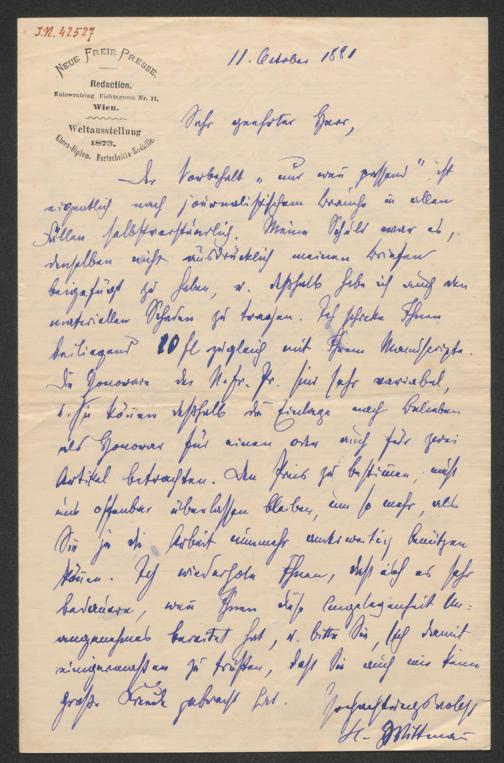 J.N. 42527
NEUE FREIE PRESSE.
Redaction.
Kolowratring, Fichtegasse Nr. 11.
Wien.
Weltausstellung
1873.
Ehren-Diplom. Fortschritts-Medaille.
11. October 1881
Sehr geehrter Herr,
Der Vorbehalt „nur wenn passend" ist
eigentlich nach journalistischem Brauche in allen
Fällen selbstverständlich. Meine Schuld war es,
denselben nicht ausdrücklich meinen Briefen
beigefügt zu haben, u. deßhalb habe ich auch den
materiellen Schaden zu tragen. Ich schicke Ihnen
beiliegend 10 fl zugleich mit Ihrem Manuscripte.
Die Honorare der N. fr. Pr. sind sehr variabel,
u. Sie können deßhalb die Einlage nach Belieben
als Honorar für einen oder auch für zwei
Artikel betrachten. Den Preis zu bestimmen, muß
uns offenbar überlassen bleiben, um so mehr, als
Sie ja die Arbeit nunmehr anderweitig benützen
können. Ich wiederhole Ihnen, daß ich es sehr
bedauere, wenn Ihnen diese Angelegenheit Un-
angenehmes bereitet hat, u. bitte Sie, sich damit
einigermaßen zu trösten, daß sie auch mir keine
große Freude gebracht hat.
Hochachtungsvollst
H. Wittmann